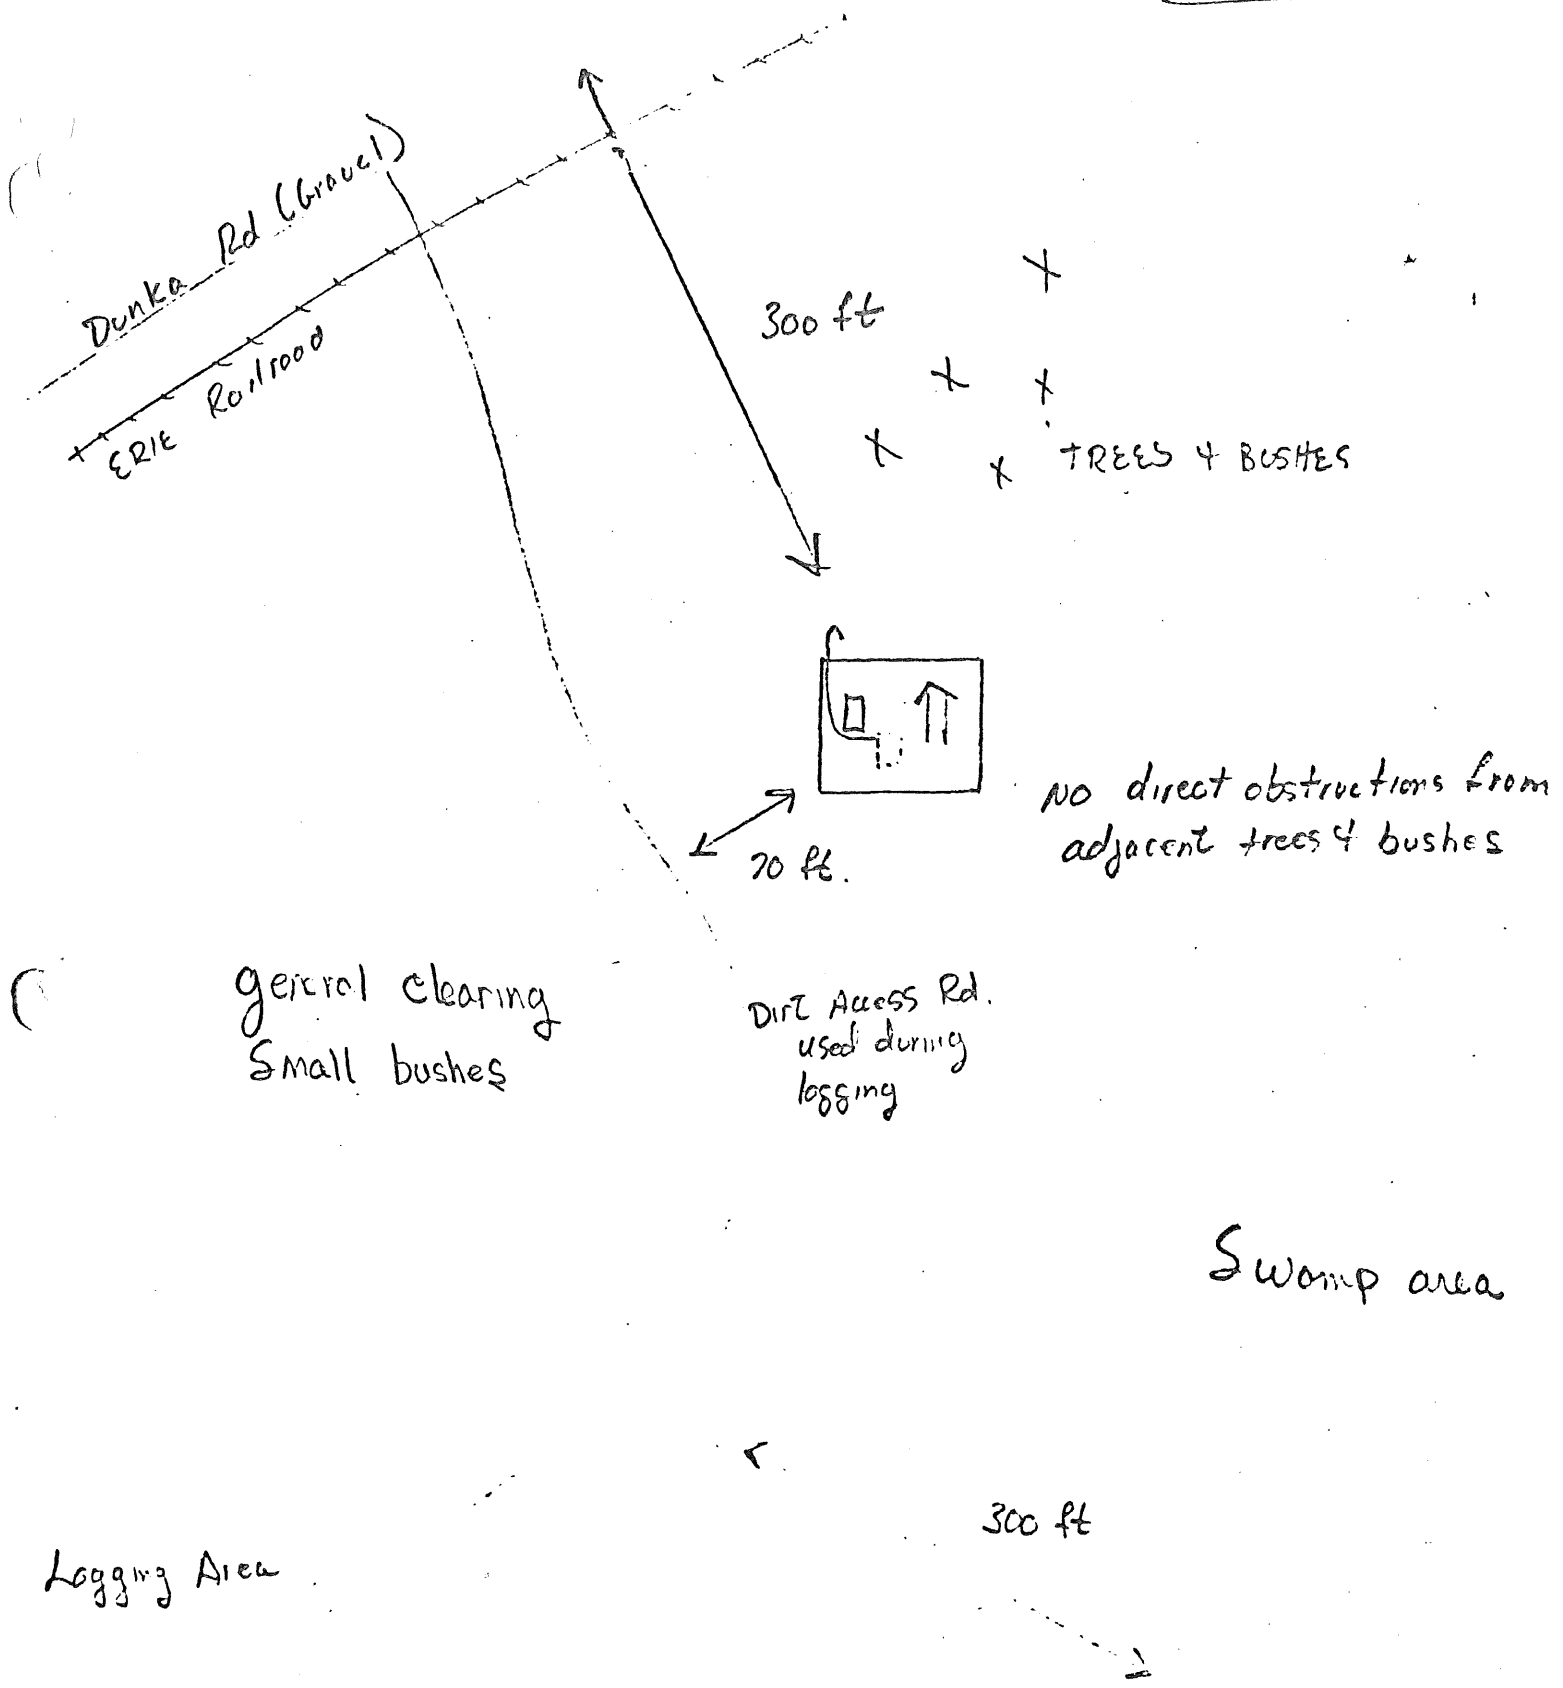 Dunka Rd (Gravel)
ERIE Railroad
300 ft
TREES & BUSHES
NO direct obstructions from
adjacent trees & bushes
70 ft.
general clearing
Small bushes
Dirt Access Rd.
used during
logging
Swamp area
300 ft
Logging Area